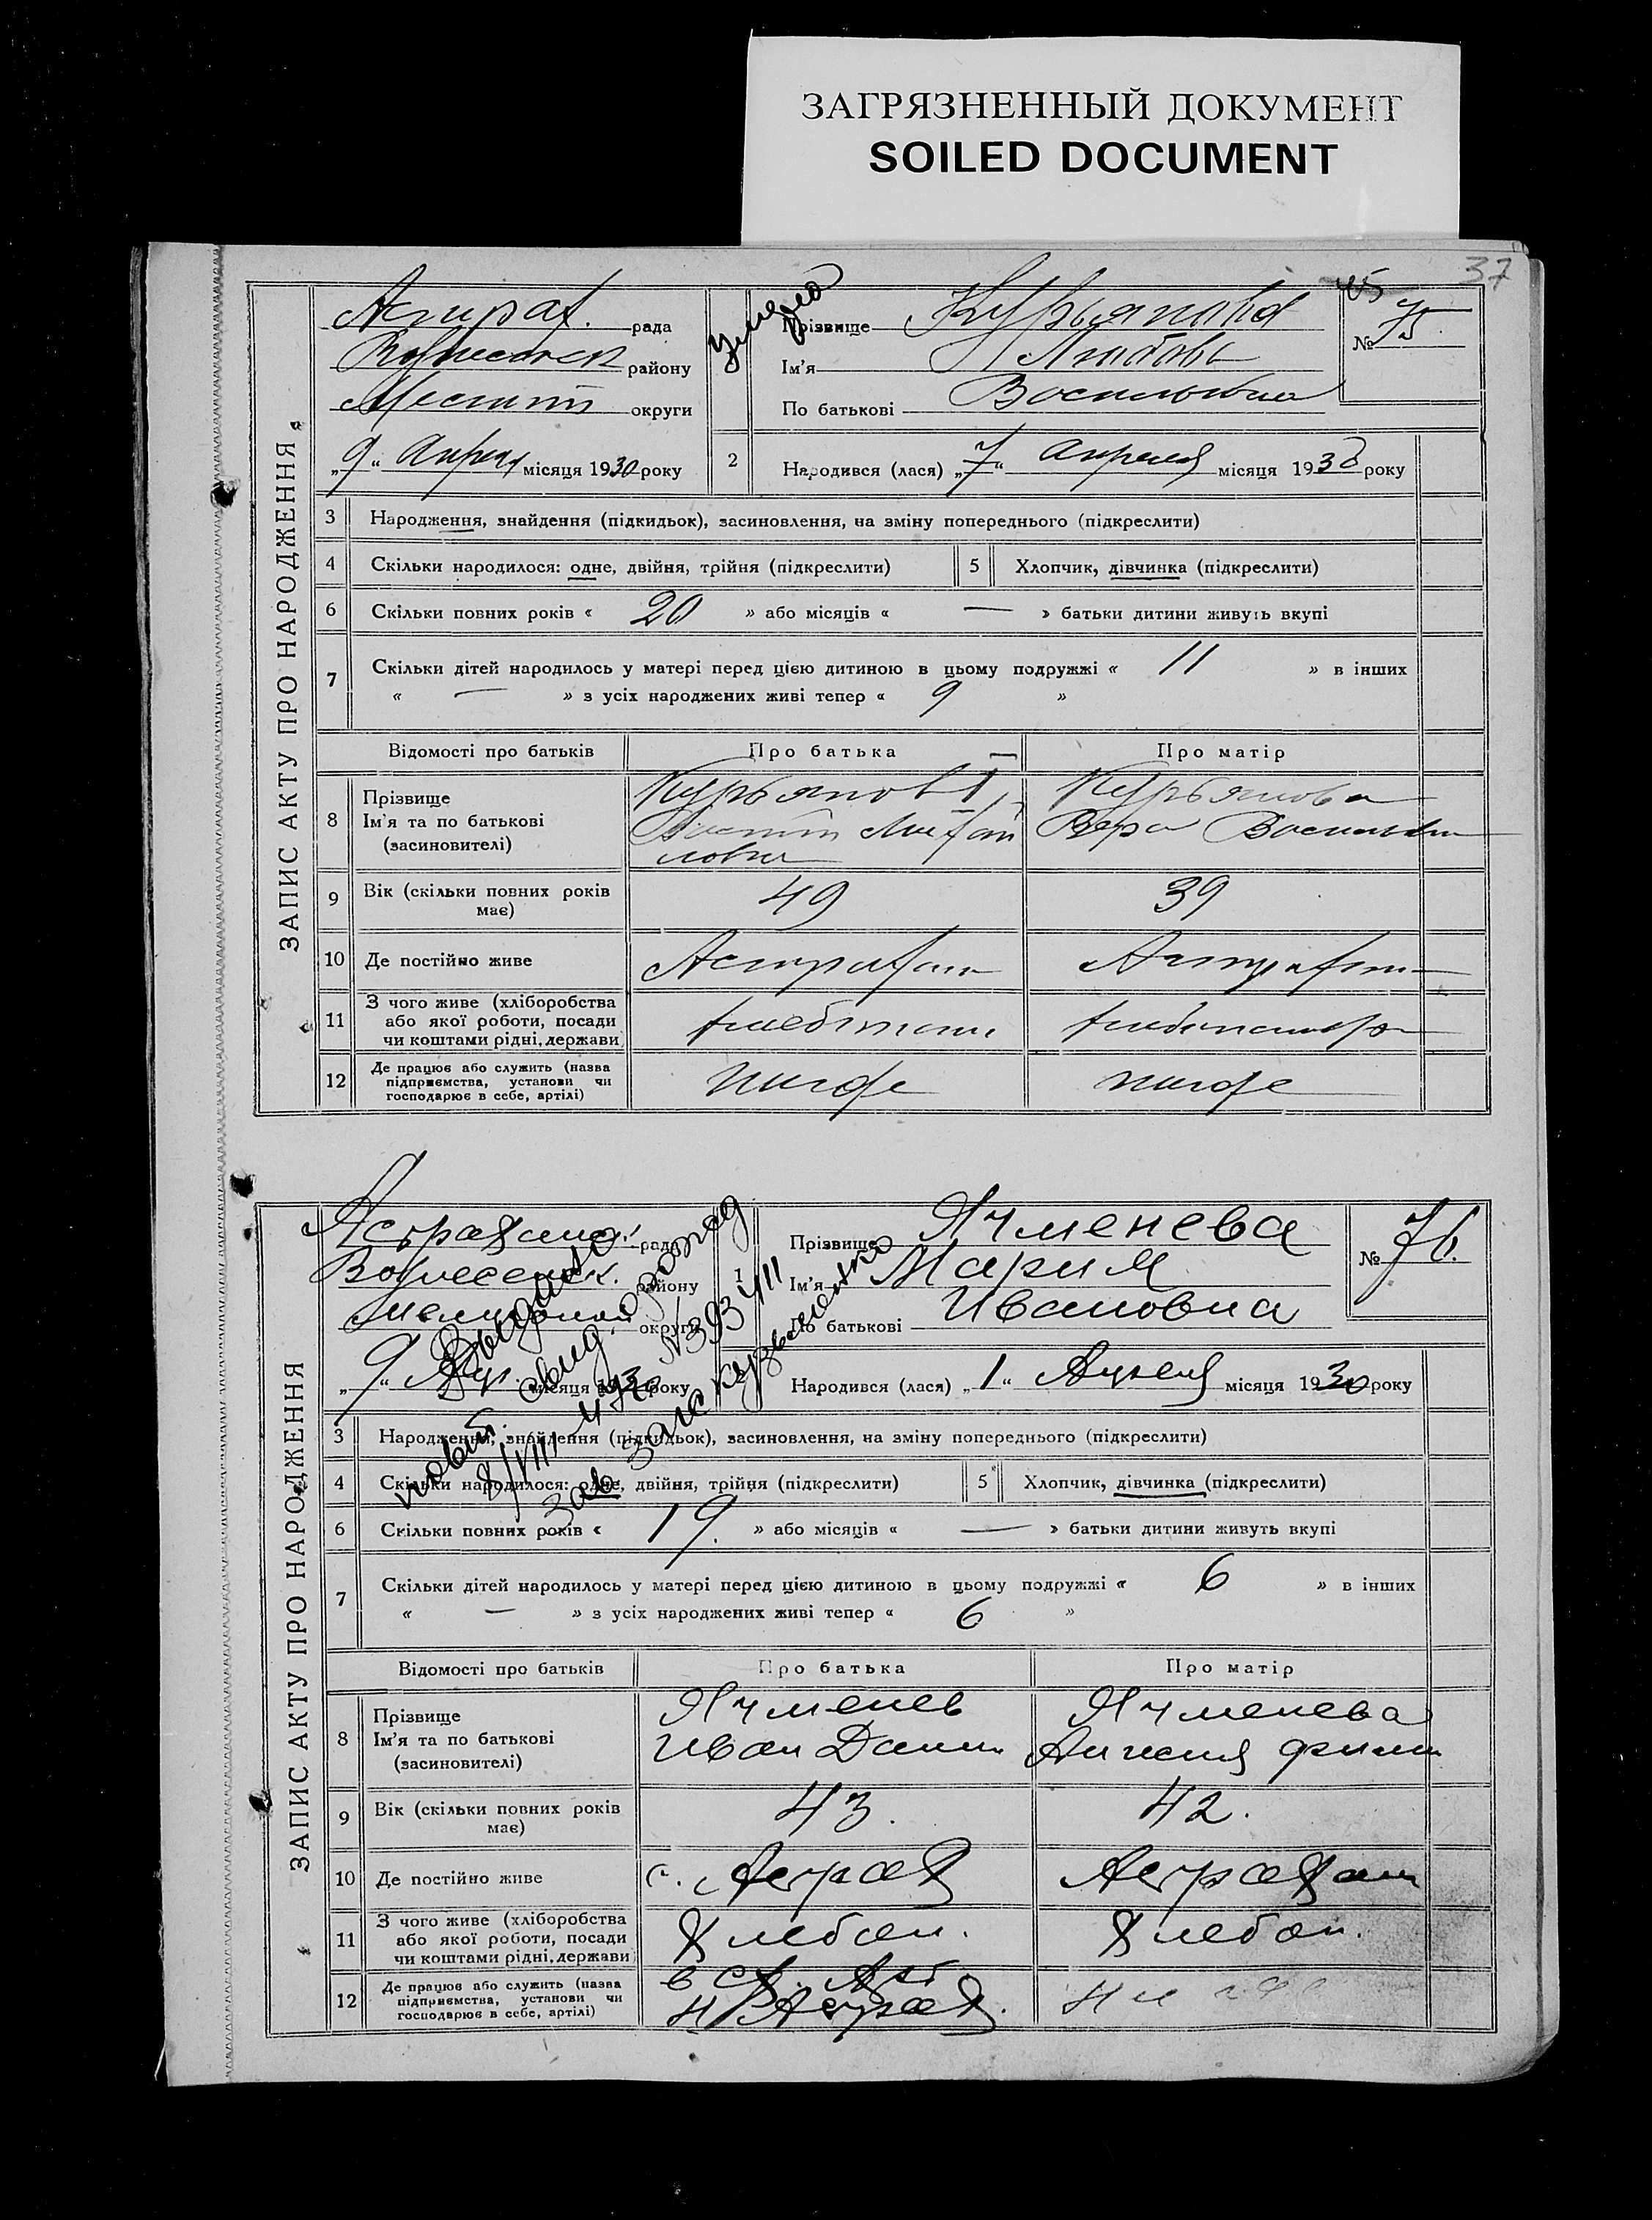 ЗАГРЯЗНЕННЫЙ ДОКУМЕНТ
SOILED DOCUMENT
37
ЗАПИС АКТУ ПРО НАРОДЖЕННЯ
Астрах. рада
району
округи
„9“ Апреля місяця 1930 року
Прізвище Курьянова
Ім'я Любовь
По батькові Васильевна
№ 75
2 Народився (лася) „7“ Апреля місяця 1930 року
3 Народження, знайдення (підкидьок), засиновлення, на зміну попереднього (підкреслити)
4 Скільки народилося: одне, двійня, трійня (підкреслити) 5 Хлопчик, дівчинка (підкреслити)
6 Скільки повних років « 20 » або місяців « — » батьки дитини живуть вкупі
7 Скільки дітей народилось у матері перед цією дитиною в цьому подружжі « 11 » в інших
« — » з усіх народжених живі тепер « 9 »
Відомості про батьків Про батька Про матір
8 Прізвище Ім'я та по батькові (засиновителі)
Курьянов
Курьянова
Вера
9 Вік (скільки повних років має) 49 39
10 Де постійно живе Астрахан Астрахан
11 З чого живе (хліборобства або якої роботи, посади чи коштами рідні, держави)
12 Де працює або служить (назва підприємства, установи чи господарює в себе, артілі) нигде нигде
ЗАПИС АКТУ ПРО НАРОДЖЕННЯ
рада
Вознесенск. району
округи
„9“ Апр. місяця 1930 року
Выдано
новый свид о рожд
№ 393411
8/VIII
зав загс Кузьменко
1 Прізвище Ячменева
Ім'я Мария
По батькові Ивановна
№ 76.
Народився (лася) „1“ Апреля місяця 1930 року
3 Народження, знайдення (підкидьок), засиновлення, на зміну попереднього (підкреслити)
4 Скільки народилося: одне, двійня, трійня (підкреслити) 5 Хлопчик, дівчинка (підкреслити)
6 Скільки повних років « 19. » або місяців « — » батьки дитини живуть вкупі
7 Скільки дітей народилось у матері перед цією дитиною в цьому подружжі « 6 » в інших
« — » з усіх народжених живі тепер « 6 »
Відомості про батьків Про батька Про матір
8 Прізвище Ім'я та по батькові (засиновителі)
Ячменев
Иван Данил
Ячменева
9 Вік (скільки повних років має) 43. 42.
10 Де постійно живе с. Астрах Астрахан
11 З чого живе (хліборобства або якої роботи, посади чи коштами рідні, держави) Хлебоп. Хлебоп.
12 Де працює або служить (назва підприємства, установи чи господарює в себе, артілі)